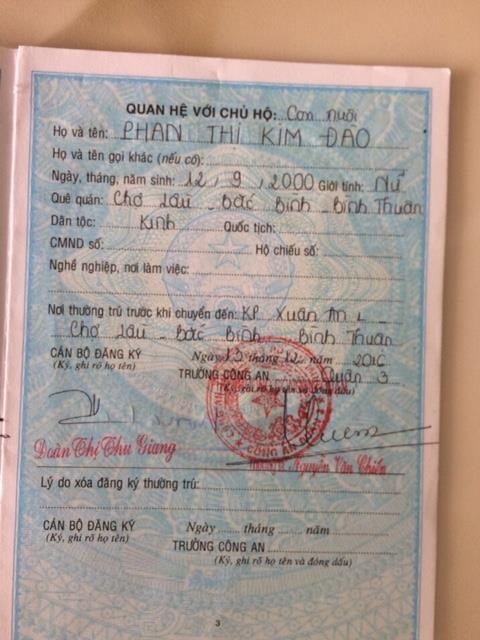 QUAN HỆ VỚI CHỦ HỘ: Con nuôi
Họ và tên: PHAN THỊ KIM ĐÀO
Họ và tên gọi khác (nếu có):
Ngày, tháng, năm sinh: 12 / 9 / 2000 Giới tính: Nữ
Quê quán: Chợ Lầu - Bắc Bình - Bình Thuận
Dân tộc: Kinh Quốc tịch:
CMND số: Hộ chiếu số:
Nghề nghiệp, nơi làm việc:
Nơi thường trú trước khi chuyển đến: KP Xuân An 1 -
Chợ Lầu - Bắc Bình - Bình Thuận
CÁN BỘ ĐĂNG KÝ Ngày 13 tháng 12 năm
(Ký, ghi rõ họ tên) TRƯỞNG CÔNG AN Quận 3
(Ký, ghi rõ họ tên và đóng dấu)
CÔNG AN QUẬN
Đoàn Thị Thu Giang Nguyễn Văn Chiến
Lý do xóa đăng ký thường trú:
CÁN BỘ ĐĂNG KÝ Ngày ..... tháng ..... năm
(Ký, ghi rõ họ tên) TRƯỞNG CÔNG AN
(Ký, ghi rõ họ tên và đóng dấu)
3